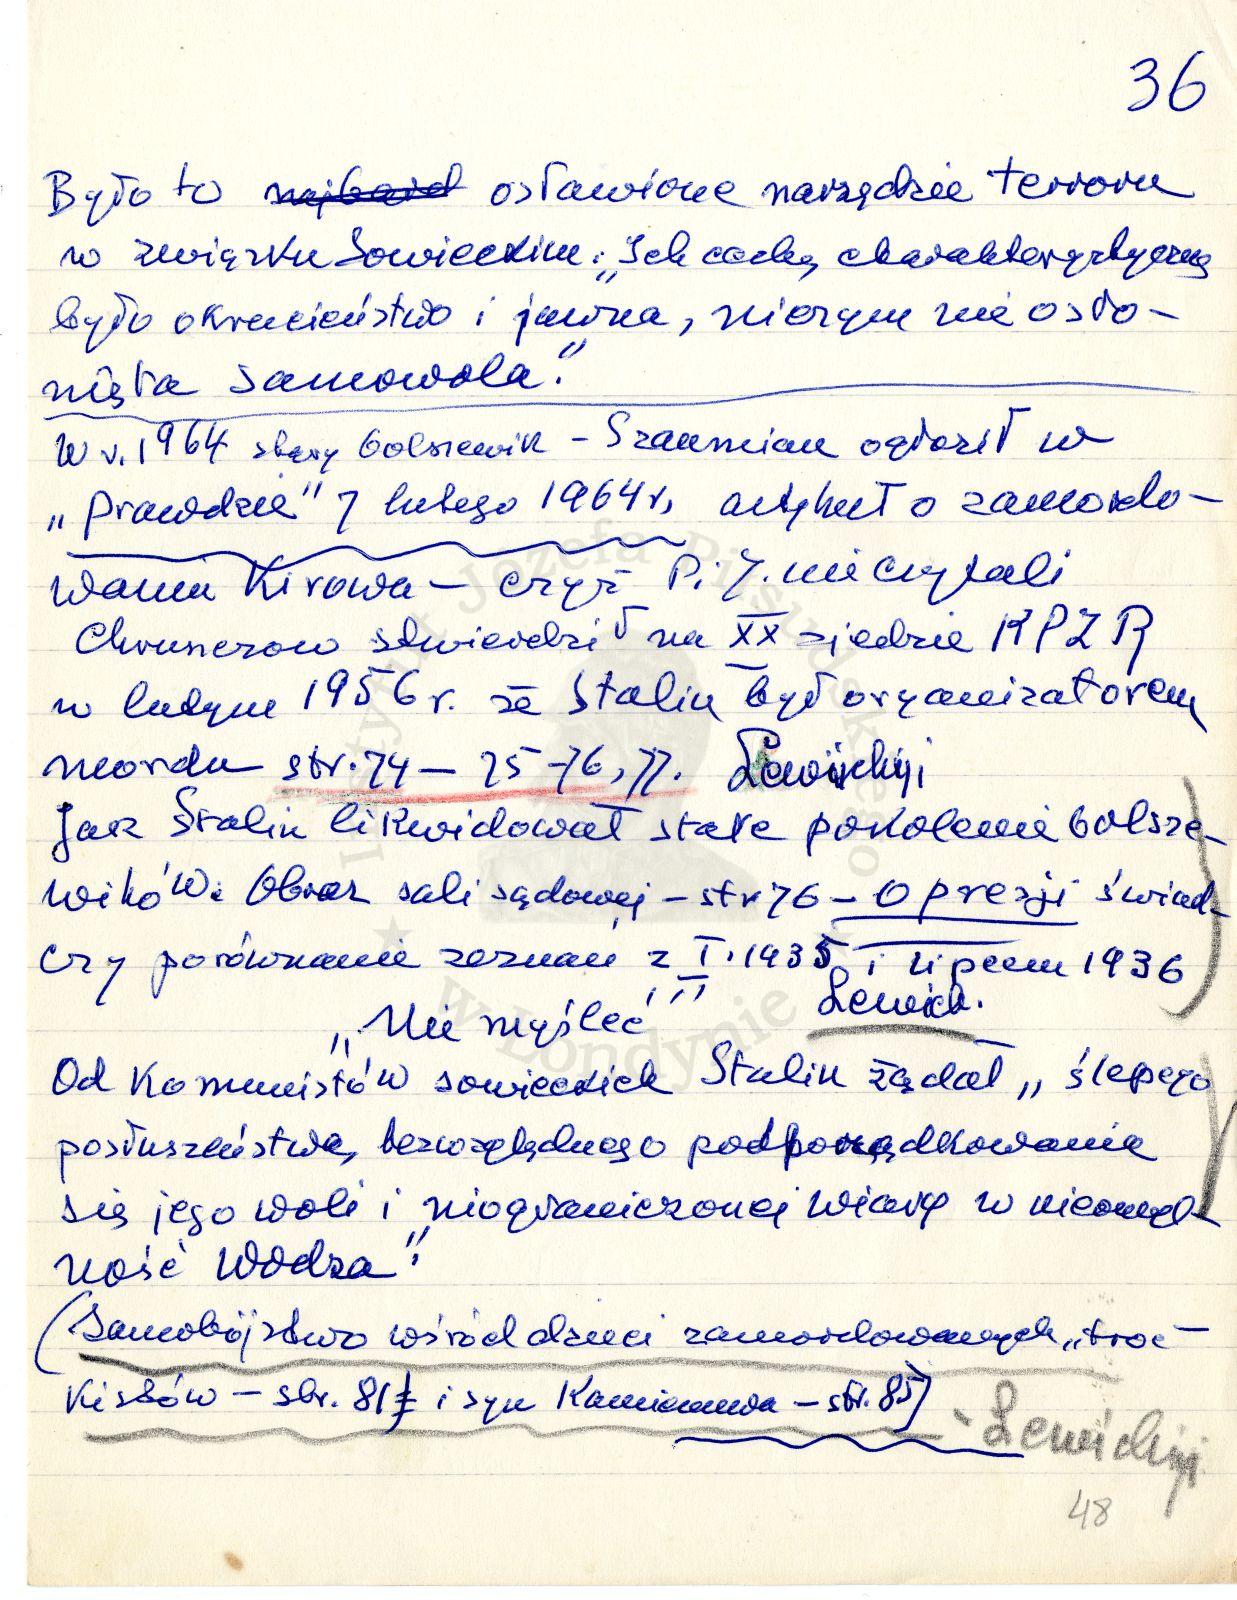 36
Było to najbard osławione narzędzie terroru
w związku Sowieckim. "Ich cechą charakterystyczną
było okrucieństwo i jawna, niczym nie osło-
nięta samowola."
W r. 1964 stary bolszewik - Szaumian ogłosił w
"Prawdzie" 7 lutego 1964 r, artykuł o zamordo-
waniu Kirowa - czyż P. i J. nie czytali
Chruszczow stwierdził na XX zjeździe KPZR
w lutym 1956 r. że Stalin był organizatorem
mordu str. 74 - 75 - 76, 77. Lewickyj
Jak Stalin likwidował stare pokolenie bolsze-
wików. Obraz sali sądowej - str 76 - O presji świad-
czy porównanie zeznań z I. 1935 i lipcem 1936
"Nie myśleć" Lewick.
Od Komunistów sowieckich Stalin żądał "ślepego
posłuszeństwa, bezwzględnego podporządkowania
się jego woli i niograniczonej wiary w nieomyl-
ność Wodza".
(Samobójstwo wśród dzieci zamordowanych "troc-
kistów - str. 81 i syn Kamieniewa - str. 85)
- Lewickyj
48
Instytut Józefa Piłsudskiego
w Londynie